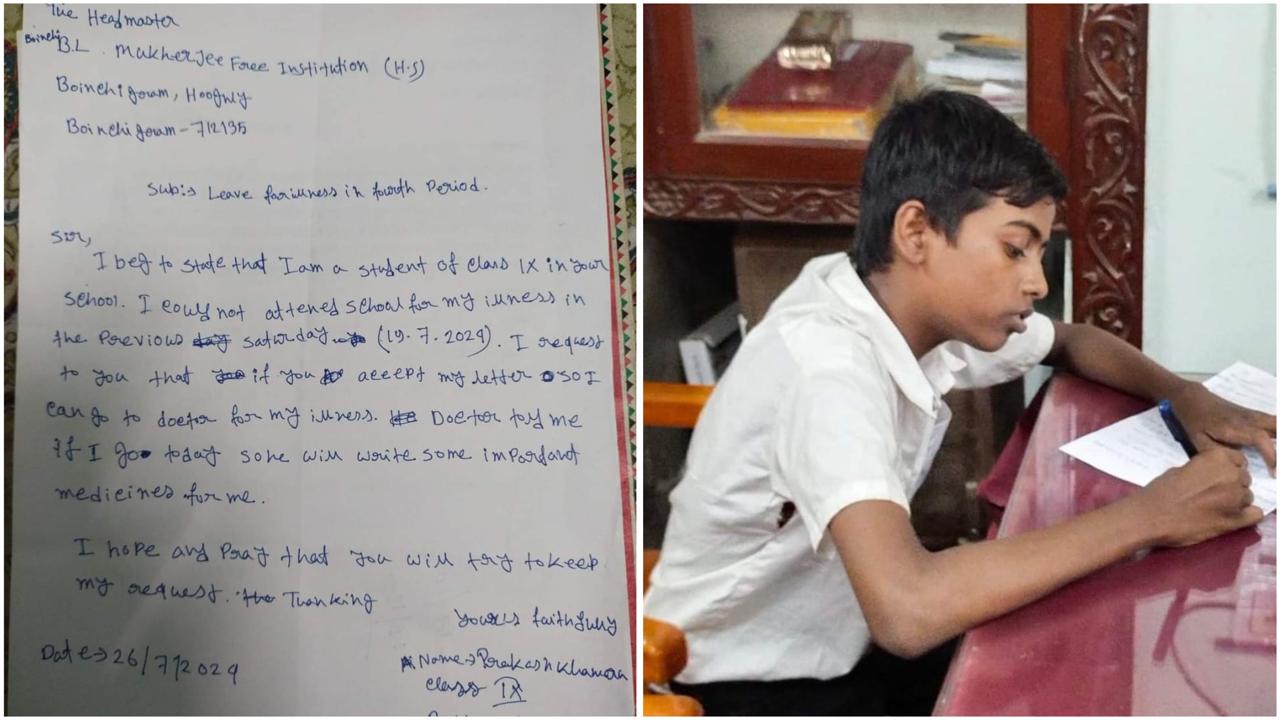 The Headmaster
Boinchi B.L. Mukherjee Free Institution (H.S)
Boinchigram, Hooghly
Boinchigram - 712135
Sub:→ Leave for illness in fourth Period.
Sir,
I beg to state that I am a student of class IX in your
school. I could not attened school for my illness in
the previous day saturday (19.7.2024). I request
to you that if you accept my letter so I
can go to doctor for my illness. Doctor told me
if I go today so he will write some important
medicines for me.
I hope and pray that you will try to keep
my request. Thanking
Yours faithfully
Date→ 26/7/2024
Name→ Prakash Khamaru
class IX